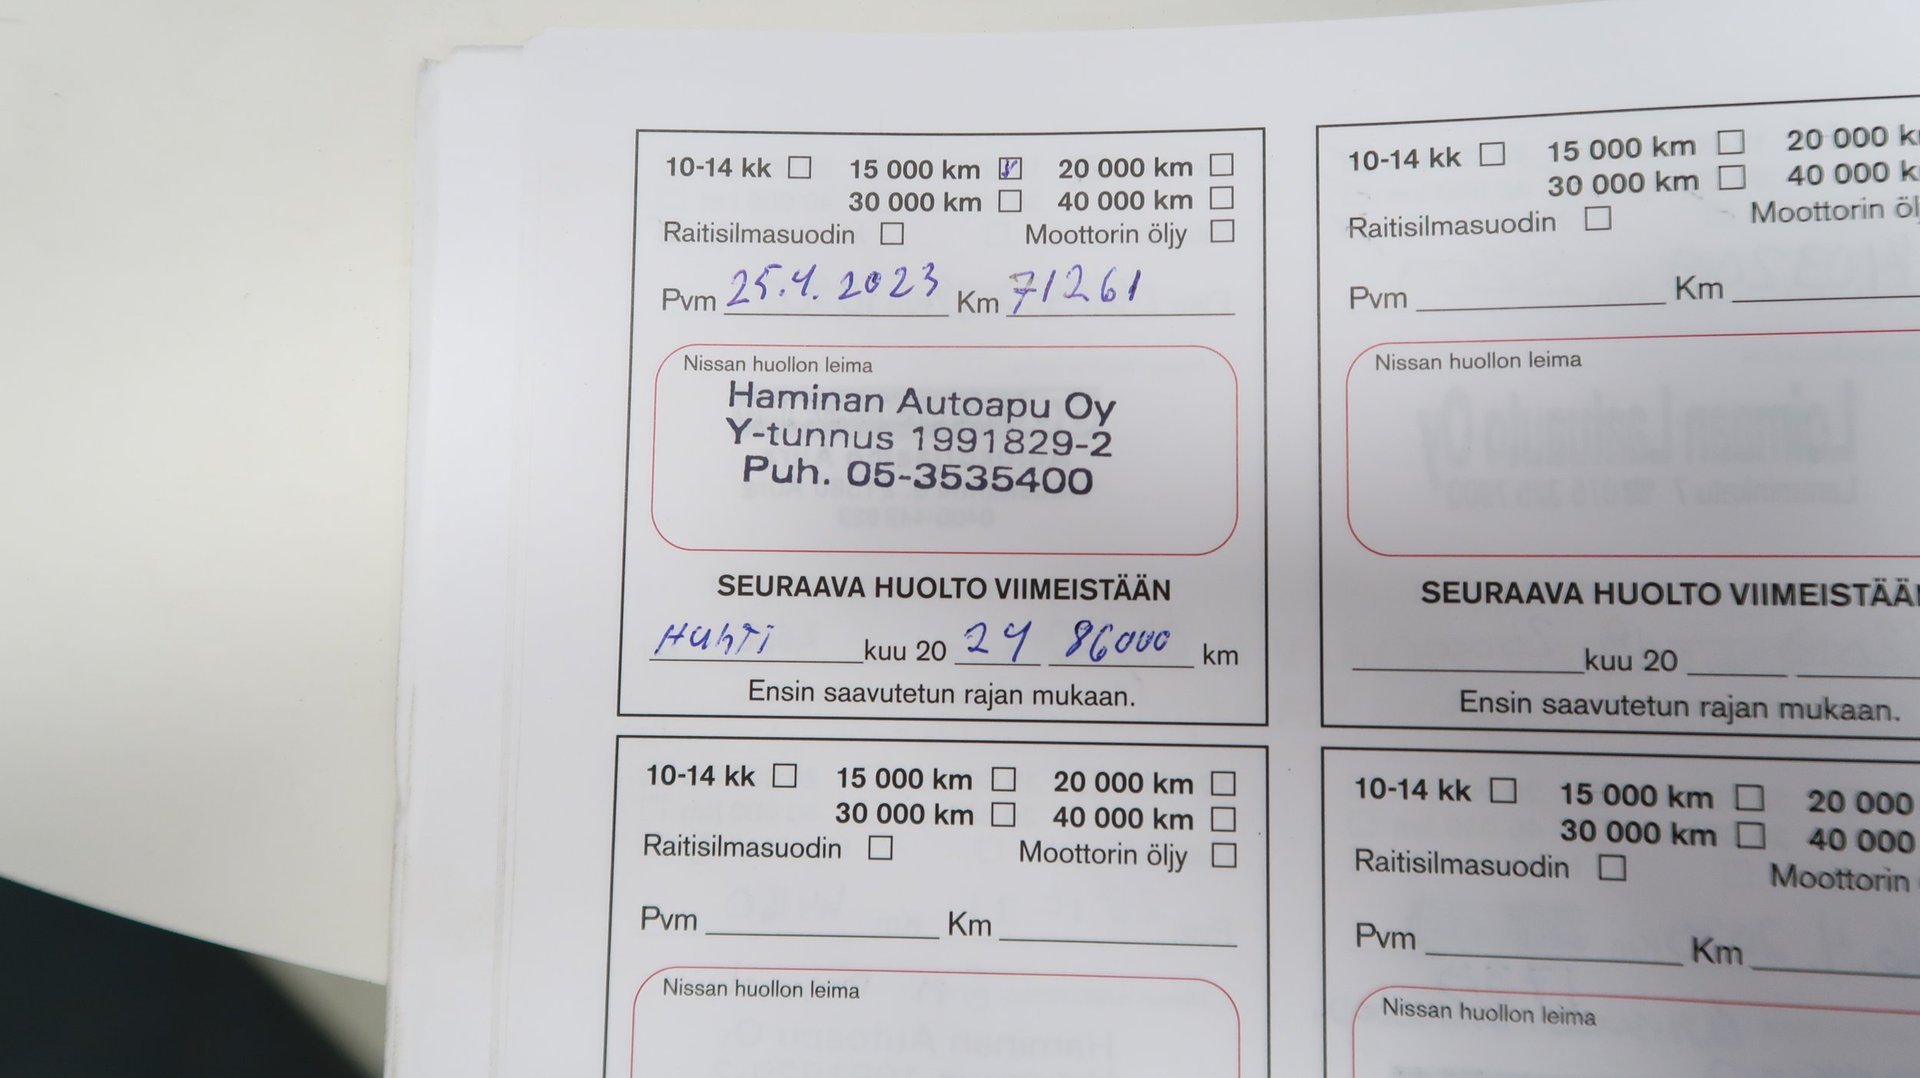 10-14 kk 15 000 km 20 000 km
30 000 km 40 000 km
Raitisilmasuodin Moottorin öljy
Pvm 25.4.2023 Km 71261
Nissan huollon leima
Haminan Autoapu Oy
Y-tunnus 1991829-2
Puh. 05-3535400
SEURAAVA HUOLTO VIIMEISTÄÄN
HuhTi kuu 20 24 86000 km
Ensin saavutetun rajan mukaan.
10-14 kk 15 000 km 20 000 k
30 000 km 40 000 k
Raitisilmasuodin Moottorin öl
Pvm Km
Nissan huollon leima
SEURAAVA HUOLTO VIIMEISTÄÄ
kuu 20
Ensin saavutetun rajan mukaan.
10-14 kk 15 000 km 20 000 km
30 000 km 40 000 km
Raitisilmasuodin Moottorin öljy
Pvm Km
Nissan huollon leima
10-14 kk 15 000 km 20 000
30 000 km 40 000
Raitisilmasuodin Moottorin
Pvm Km
Nissan huollon leima